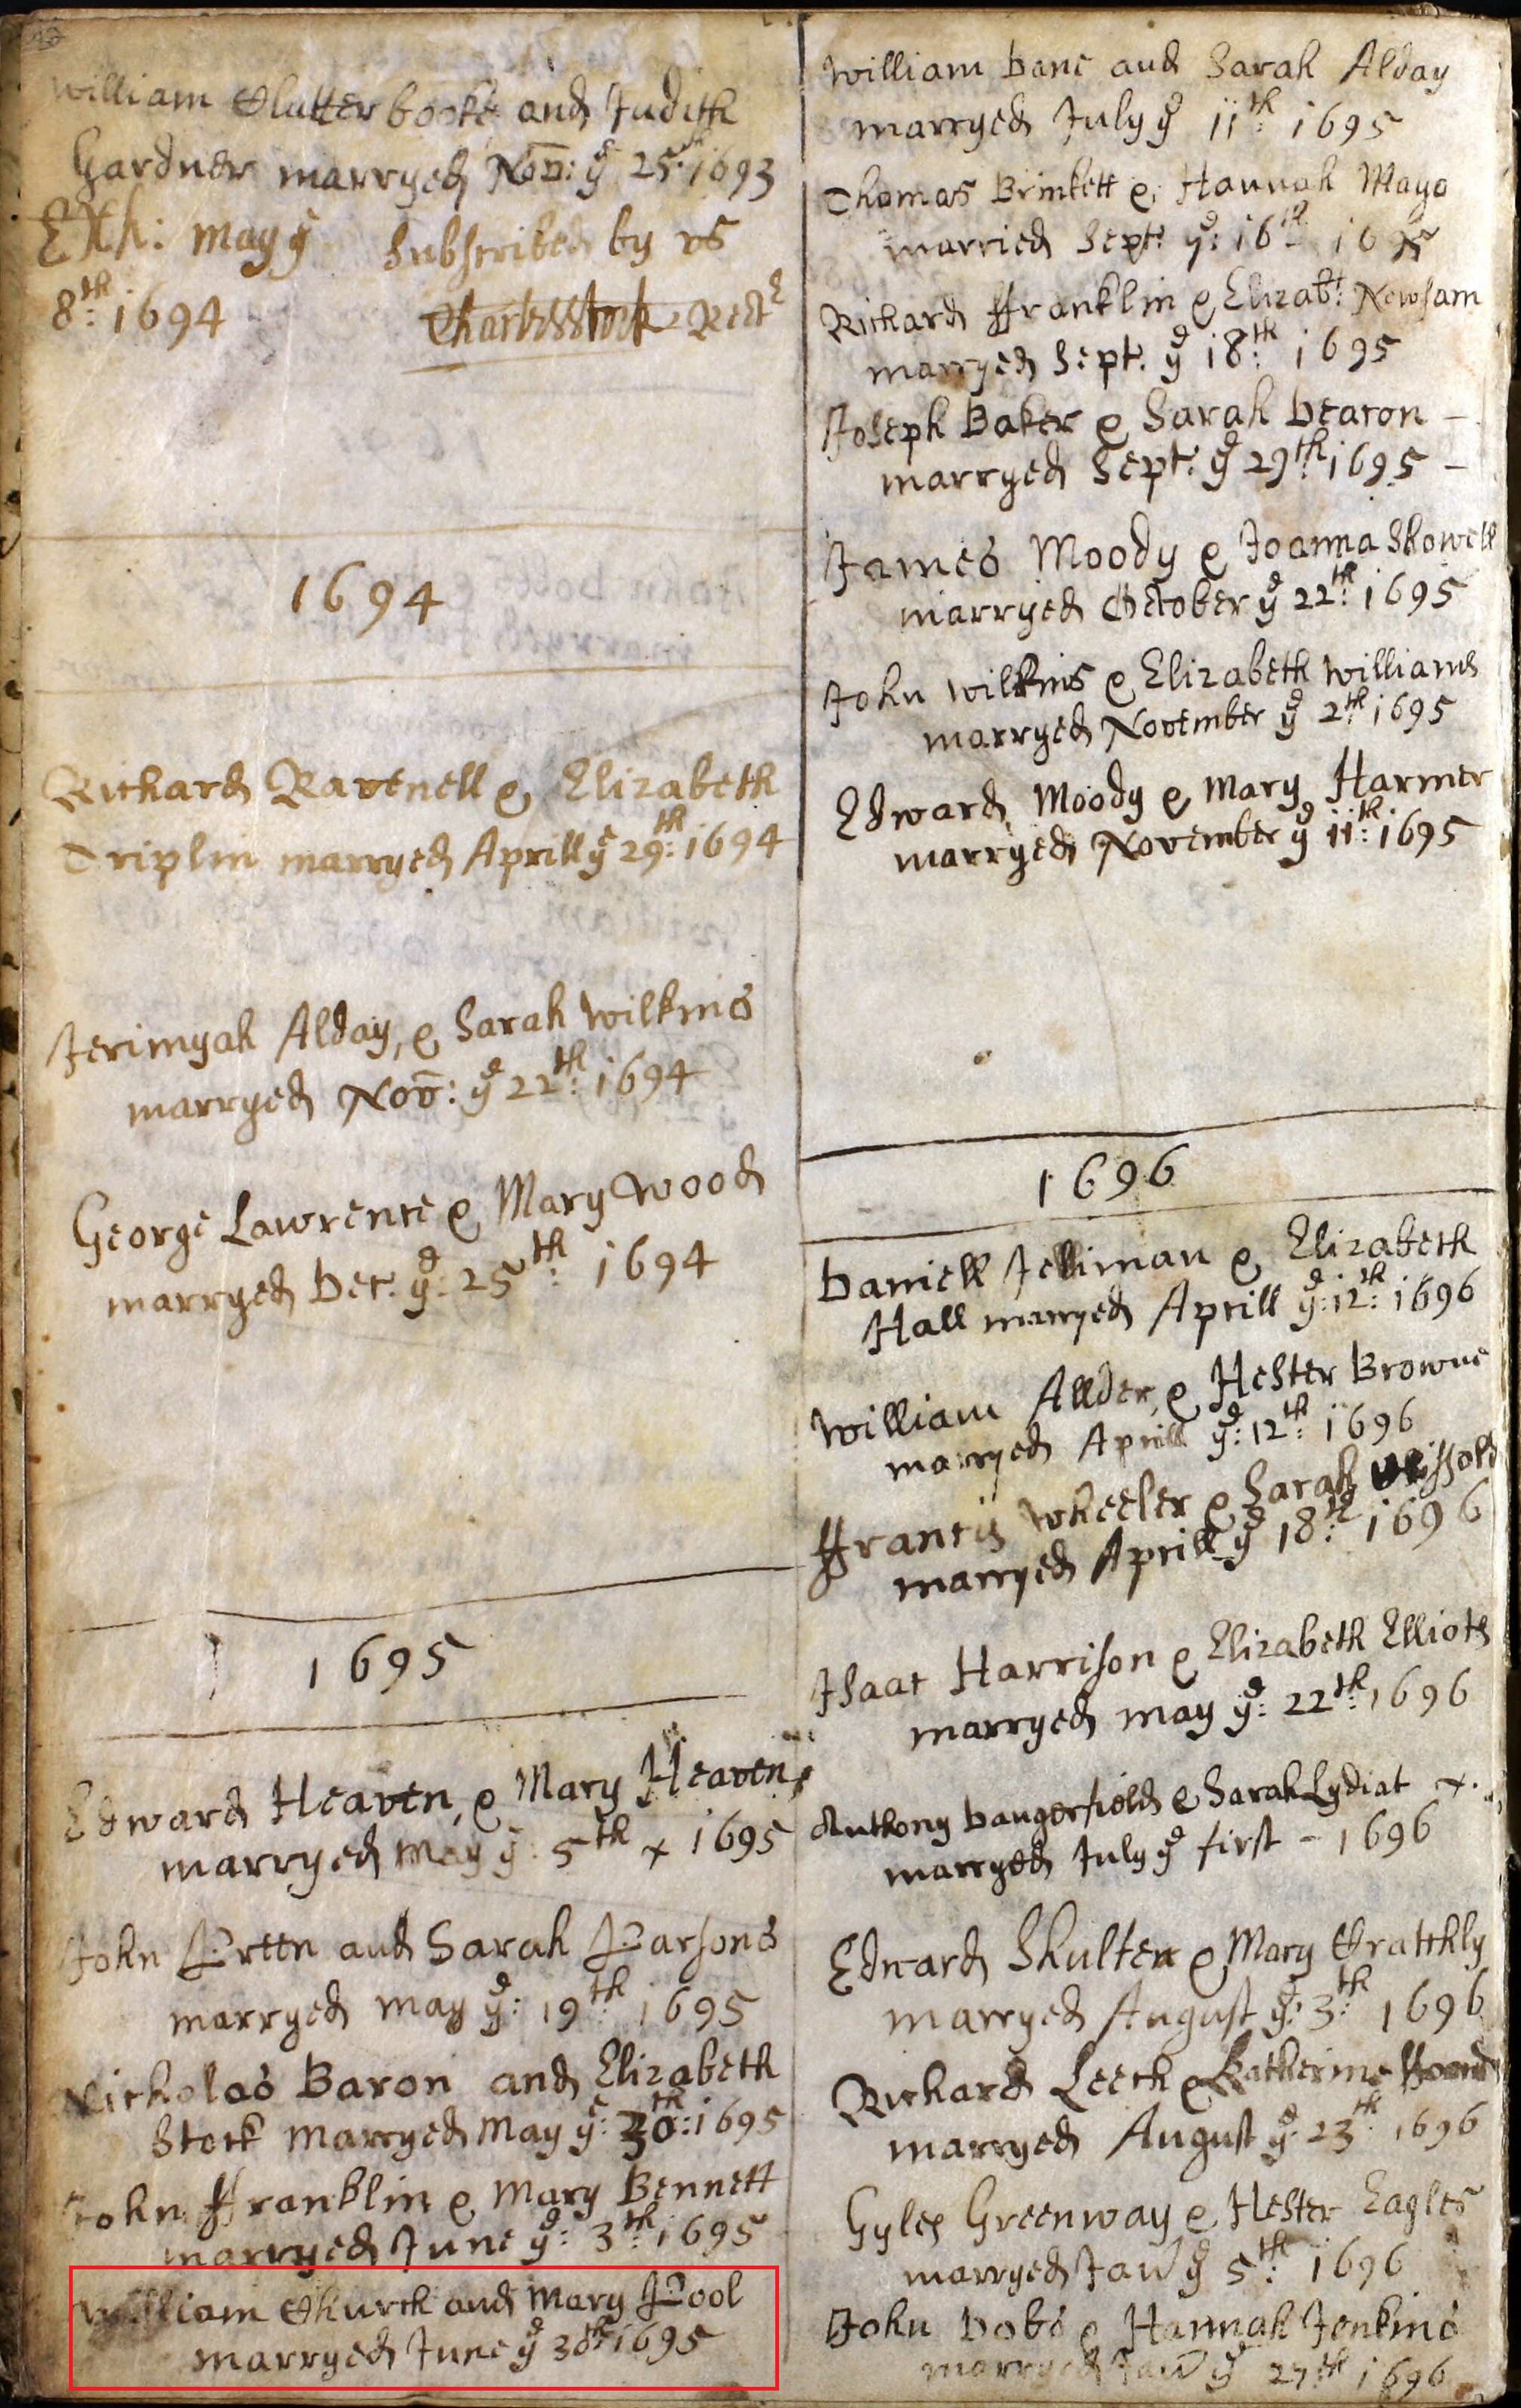 William Clutterbooke and Judith
Gardner marryed Nov: ye 25th 1693
Exh: May ye Subscribed by us
8th: 1694 Charles Stock Rectr
1694
Richard Ravenell & Elizabeth
Triplin marryed Aprill ye 29th: 1694
Jerimyah Alday, & Sarah Wilkins
marryed Nov: ye 22th: 1694
George Lawrence & Mary Wood
marryed Dec: ye: 25th: 1694
1695
Edward Heaven, & Mary Heaven
marryed May ye: 5th x 1695
John and Sarah Parsons
marryed May ye: 19th 1695
Nicholas Baron and Elizabeth
Stock Marryed May ye: 30th: 1695
John Franklin & Mary Bennett
marryed June ye: 3th: 1695
William Church and Mary Pool
marryed June ye 30th 1695
William Dane and Sarah Alday
marryed July ye 11th: 1695
Thomas Brinkett & Hannah Mayo
married Sept: ye: 16th 1695
Richard Franklin & Elizabt: Newsam
marryed Sept: ye 18th: 1695
Joseph Baker & Sarah Deacon –
marryed Sept: ye 29th: 1695 –
James Moody & Joanna Showell
marryed October ye 22th: 1695
John Wilkins & Elizabeth Williams
marryed November ye 2th: 1695
Edward Moody & Mary Harmer
marryed November ye 11th: 1695
1696
Daniell Jelliman & Elizabeth
Hall marryed Aprill ye: 12th: 1696
William Allder, & Hester Browne
marryed Aprill ye: 12th: 1696
Francis Wheeler & Sarah
marryed Aprill ye 18th: 1696
Isaac Harrison & Elizabeth Elliots
marryed May ye: 22th: 1696
Anthony Dangerfield & Sarah Lydiat x.
marryed July ye first – 1696
Edward Shulter & Mary Cratchly
marryed August ye: 3th: 1696
Richard Leech & Katherine
marryed August ye: 23th 1696
Gyles Greenway & Hester Eagles
marryed Jan ye 5th: 1696
John Dobs & Hannah Jenkins
marryed Jan ye 27th 1696